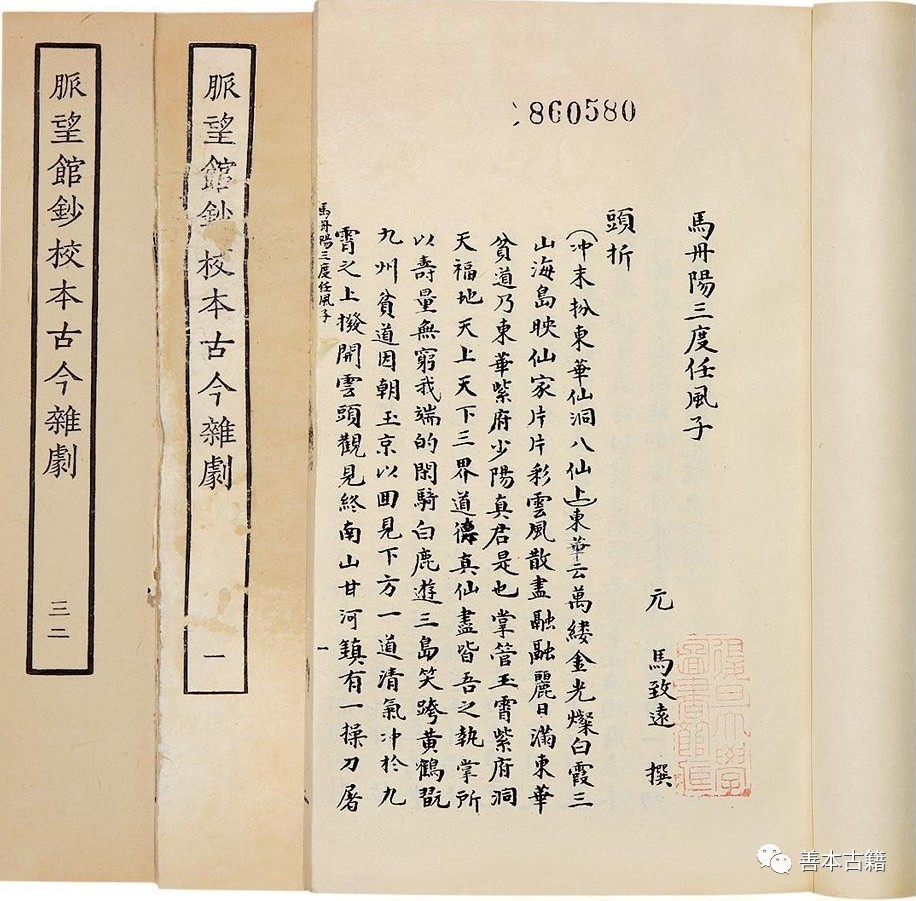 脈望館鈔校本古今雜劇
三二
脈望館鈔校本古今雜劇
一
860580
馬丹陽三度任風子
元 馬致遠 撰
復旦大學
圖書館
頭折
(冲末扮東華仙洞八仙上)東華云萬縷金光燦白霞三
山海島映仙家片片彩雲風散盡融融麗日滿東華
貧道乃東華紫府少陽真君是也掌管玉霄紫府洞
天福地天上天下三界道德真仙盡皆吾之執掌所
以壽量無窮我端的閑騎白鹿遊三島笑跨黃鶴翫
九州貧道因朝玉京以囬見下方一道清氣冲於九
霄之上撥開雲頭觀見終南山甘河鎮有一操刀屠
馬丹陽三度任風子
一
善本古籍